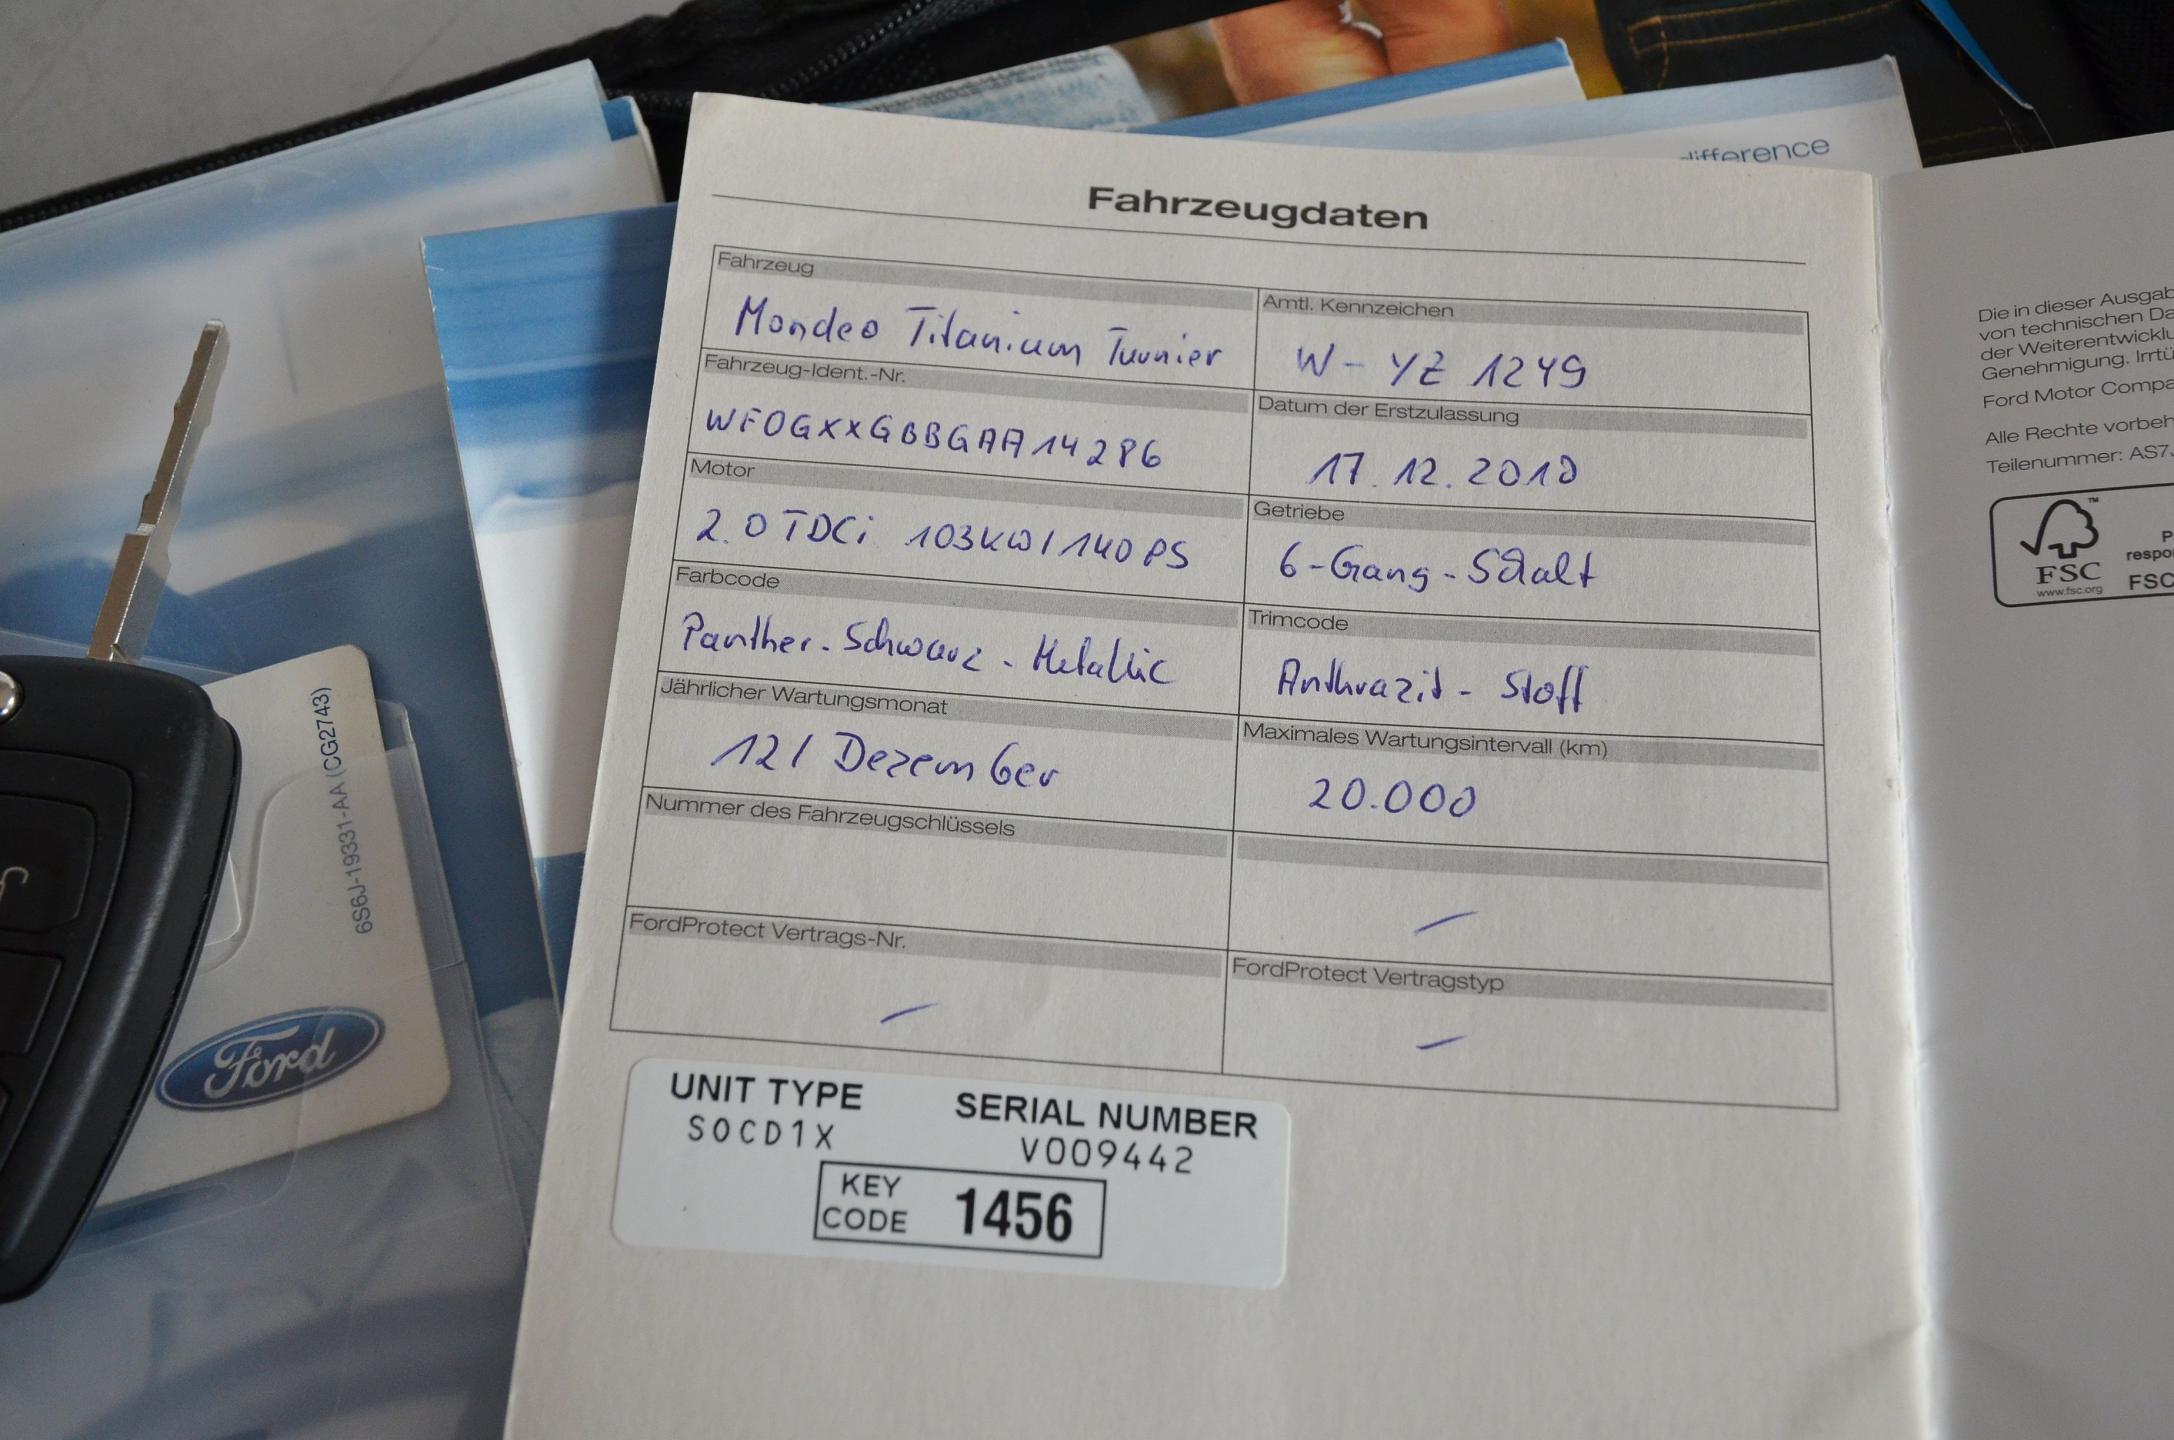 difference
Fahrzeugdaten
Fahrzeug
Mondeo Titanium Turnier
Amtl. Kennzeichen
W - YZ 1249
Fahrzeug-Ident.-Nr.
WF0GXXGBBGAA14286
Datum der Erstzulassung
17.12.2010
Motor
2.0 TDCi 103KW/140PS
Getriebe
6-Gang-Schalt
Farbcode
Panther-Schwarz-Metallic
Trimcode
Anthrazit - Stoff
Jährlicher Wartungsmonat
12/ Dezember
Maximales Wartungsintervall (km)
20.000
Nummer des Fahrzeugschlüssels
FordProtect Vertrags-Nr.
FordProtect Vertragstyp
UNIT TYPE
SOCD1X
SERIAL NUMBER
V009442
KEY CODE 1456
6S6J-19331-AA (CG2743)
Ford
Die in dieser
von technischen
der
Genehmigung.
Ford Motor
Alle Rechte
Teilenummer:
FSC
www.fsc.org
FSC